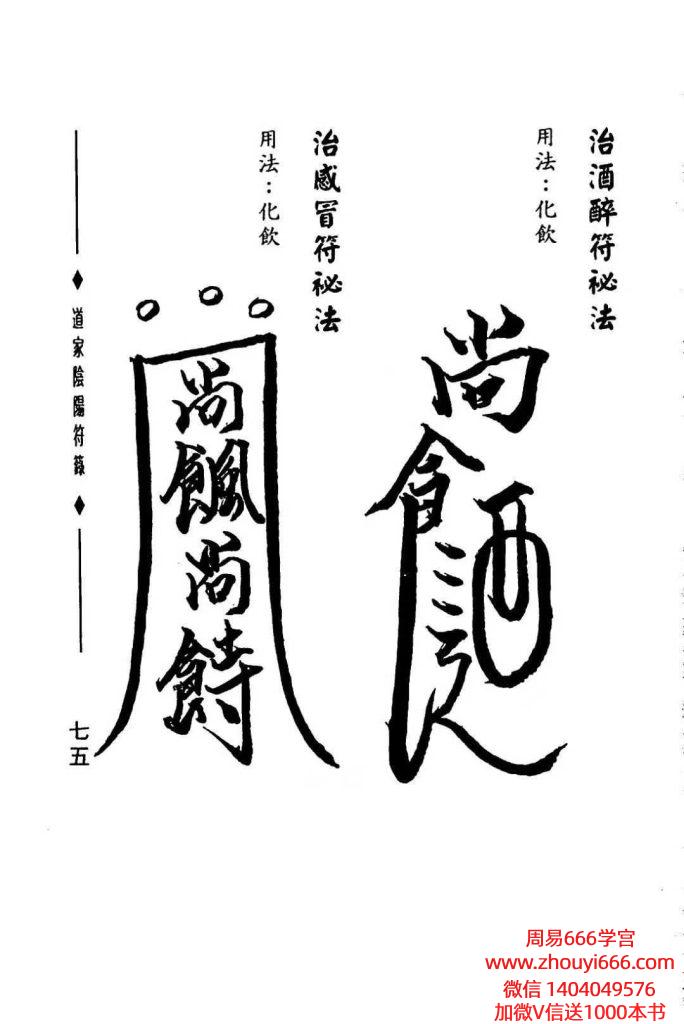 治酒醉符祕法
用法：化飲
尚
食
酉
治感冒符祕法
用法：化飲
尚
尚
道家陰陽符籙
七五
周易666学宫
www.zhouyi666.com
微信 1404049576
加微V信送1000本书